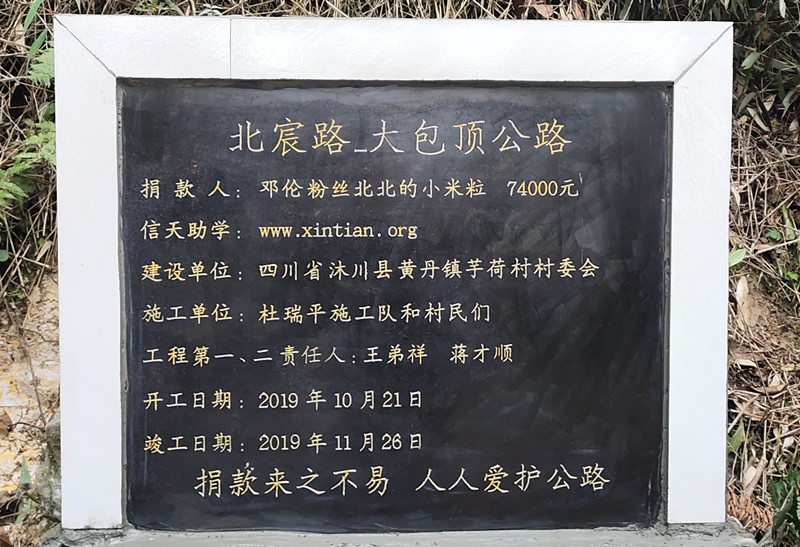 北宸路_大包顶公路
捐 款 人：邓伦粉丝北北的小米粒 74000元
信天助学：www.xintian.org
建设单位：四川省沐川县黄丹镇芋荷村村委会
施工单位：杜瑞平施工队和村民们
工程第一、二责任人：王弟祥 蒋才顺
开工日期：2019年10月21日
竣工日期：2019年11月26日
捐款来之不易 人人爱护公路